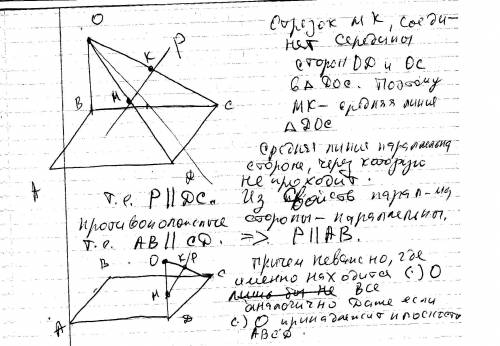 O
K
P
M
B
C
A
D
Отрезок MK, соеди-
няет середины
сторон OD и OC
в △ DOC. Поэтому
MK - средняя линия
△ DOC
Средняя линия параллельна
стороне, через которую
не проходит.
Т.е. P || DC. Из свойств парал-ма
противоположные стороны - параллельны,
т.е. AB || CD. => P || AB.
B
O
K/P
C
M
A
D
Причем неважно, где
именно находится (·) O
все
аналогично даже если
(·) O принадлежит плоскости
ABCD.